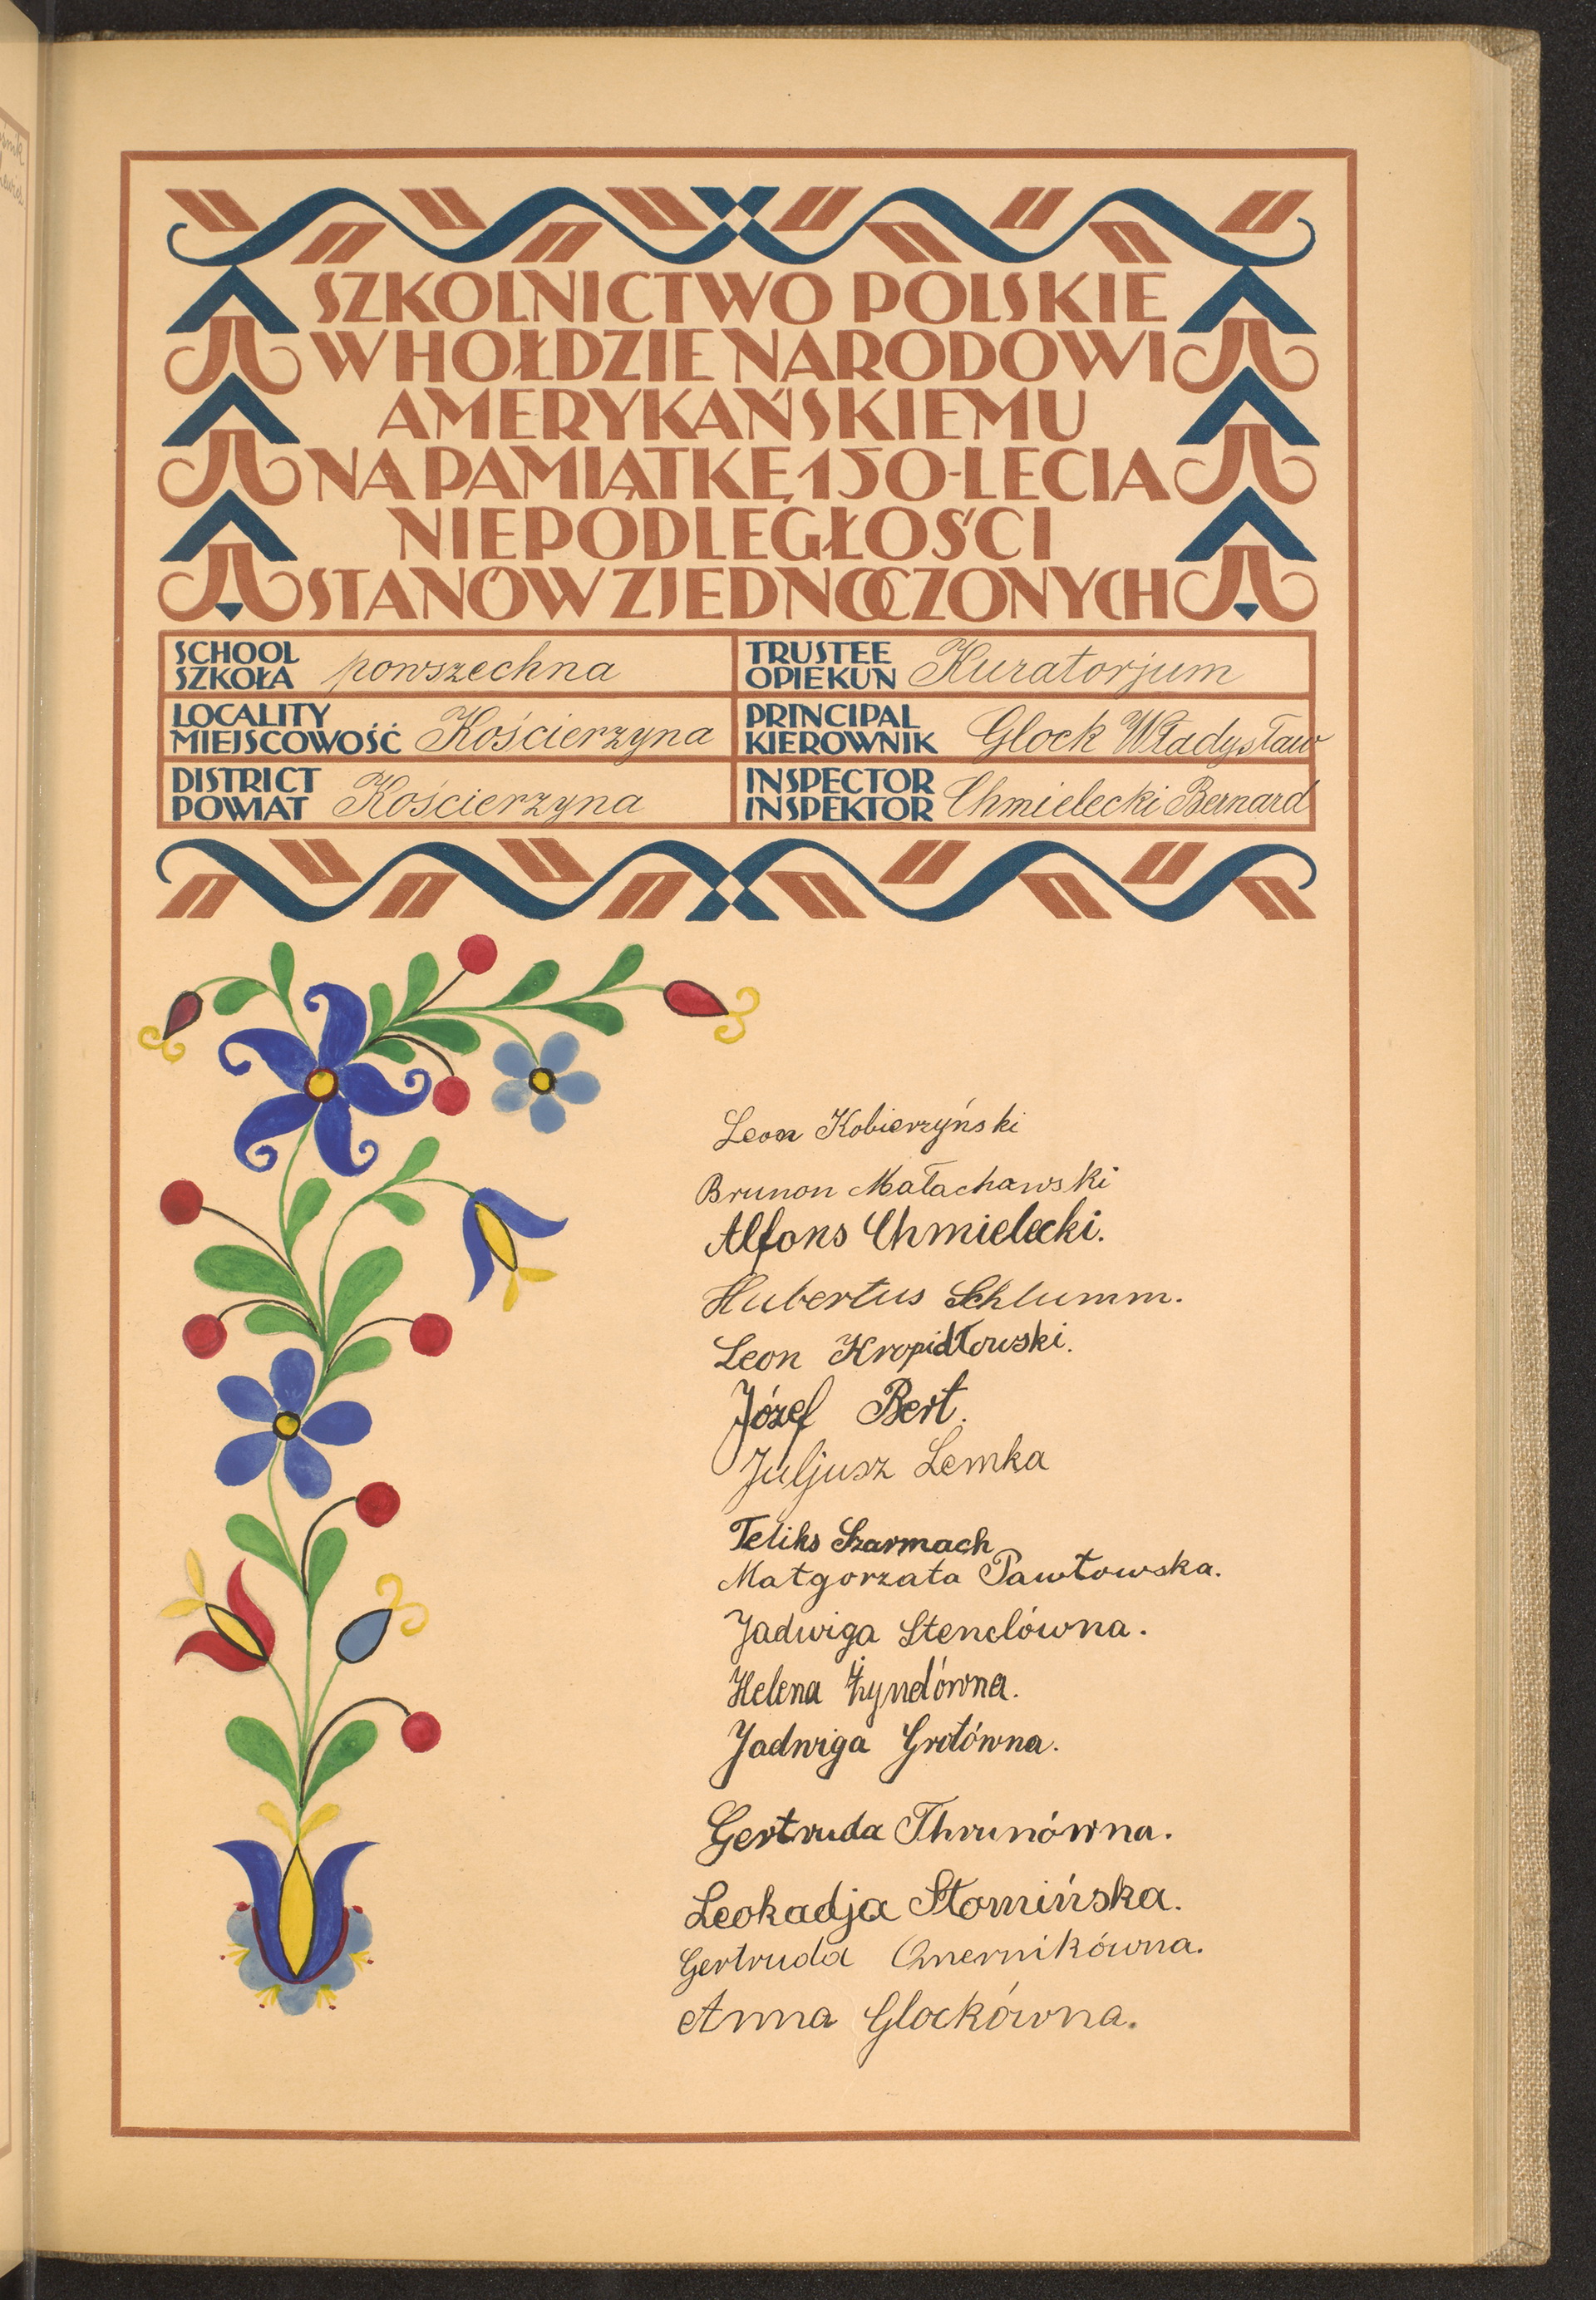 SZKOLNICTWO POLSKIE
W HOŁDZIE NARODOWI
AMERYKAŃSKIEMU
NA PAMIĄTKĘ 150-LECIA
NIEPODLEGŁOŚCI
STANÓW ZJEDNOCZONYCH
SCHOOL
SZKOŁA powszechna
TRUSTEE
OPIEKUN Kuratorjum
LOCALITY
MIEJSCOWOŚĆ Kościerzyna
PRINCIPAL
KIEROWNIK Glock Władysław
DISTRICT
POWIAT Kościerzyna
INSPECTOR
INSPEKTOR Chmielecki Bernard
Leon Kobierzyński
Brunon Małachawski
Alfons Chmielecki.
Hubertus Schlumm.
Leon Kropidłowski.
Józef Bert.
Juljusz Lemka
Feliks Szarmach
Małgorzata Pawłowska.
Jadwiga Stenclówna.
Helena Żyndówna.
Jadwiga Grotówna.
Gertruda Thrunówna.
Leokadja Słomińska.
Gertruda
Anna Glockówna.